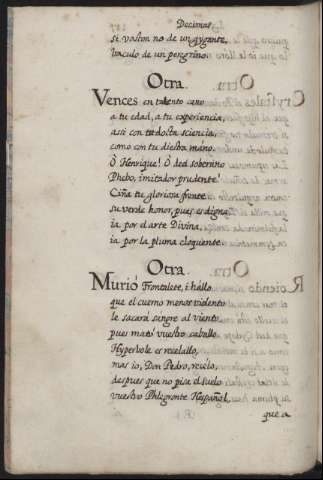 Decimas
si vaston no de un gygante,
baculo de un peregrino.
Otra.
Vences en talento cano
a tu edad, a tu experiencia,
asi con tu docta sciencia,
como con tu diestra mano.
Ò Henrique! Ò del soberano
Phebo, imitador prudente!
Ciña tu gloriosa frente
su verde honor, pues es digna
ia por el arte Divina,
ia por la pluma eloquente.
Otra.
Murió Frontalete, i hallo
que el cuerno menos violento
le sacará sangre al viento,
pues mató vuestro caballo.
Hyperbole es recelallo,
mas io, Don Pedro, recelo,
despues que no pisa el suelo
vuestro Phlegonte Hespañol,
que a